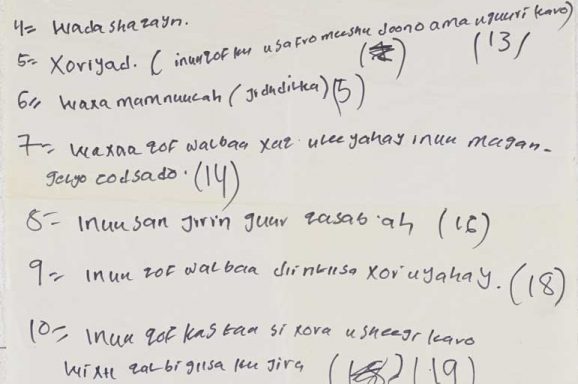 4= wadashaqayn.
5= Xoriyad. (inuu qof ku usafro meeshu doono ama u guuri karo) (13)
6= waxa mamnuucah (jirdudilka) (5)
7= waxaa qof walbaa xaq uleeyahay inuu magan-
gelyo codsado. (14)
8= inuusan jirin guur qasab ah (16)
9= inuu qof walbaa diintiisa xor u yahay. (18)
10= inuu qof kastaa si xora u sheegi karo
wixii qalbigiisa ku jira (19)